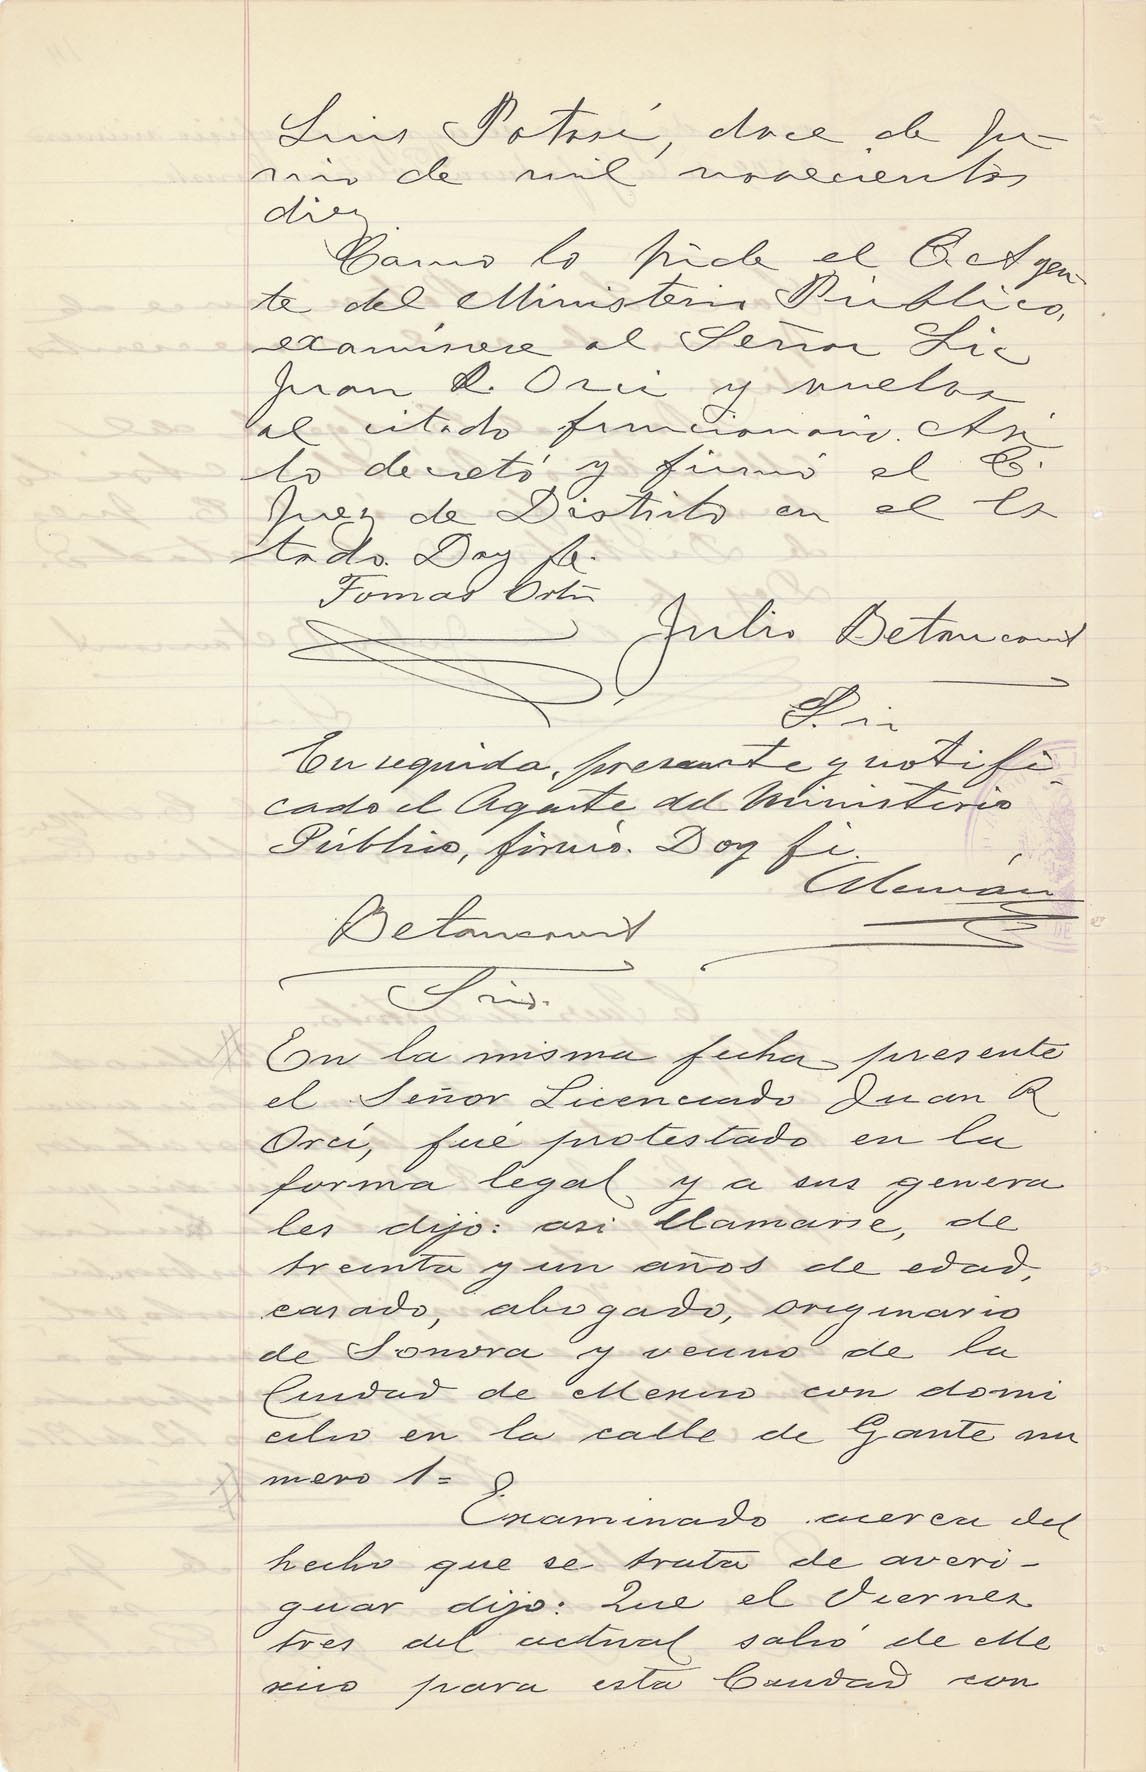 Luis Potosí, doce de Ju-
nio de mil novecientos
diez
Como lo pide el C. Agen-
te del Ministerio Público,
examínese al Señor Lic
Juan R. Orci y vuelva
al citado funcionario. Así
lo decretó y firmó el C.
Juez de Distrito en el Es
tado. Doy fe.
Tomas Ortiz
Julio Betancourt
Srio
En seguida, presente y notifi
cado el Agente del Ministerio
Público, firmó. Doy fé.
Alemán
Betancourt
Srio.
En la misma fecha presente
el Señor Licenciado Juan R
Orcí, fué protestado en la
forma legal y a sus genera
les dijo: asi llamarse, de
treinta y un años de edad,
casado, abogado, originario
de Sonora y vecino de la
Ciudad de Mexico con domi
cilio en la calle de Gante nu
mero 1=
Examinado acerca del
hecho que se trata de averi-
guar dijo: Que el Viernes
tres del actual salió de Me
xico para esta Ciudad con